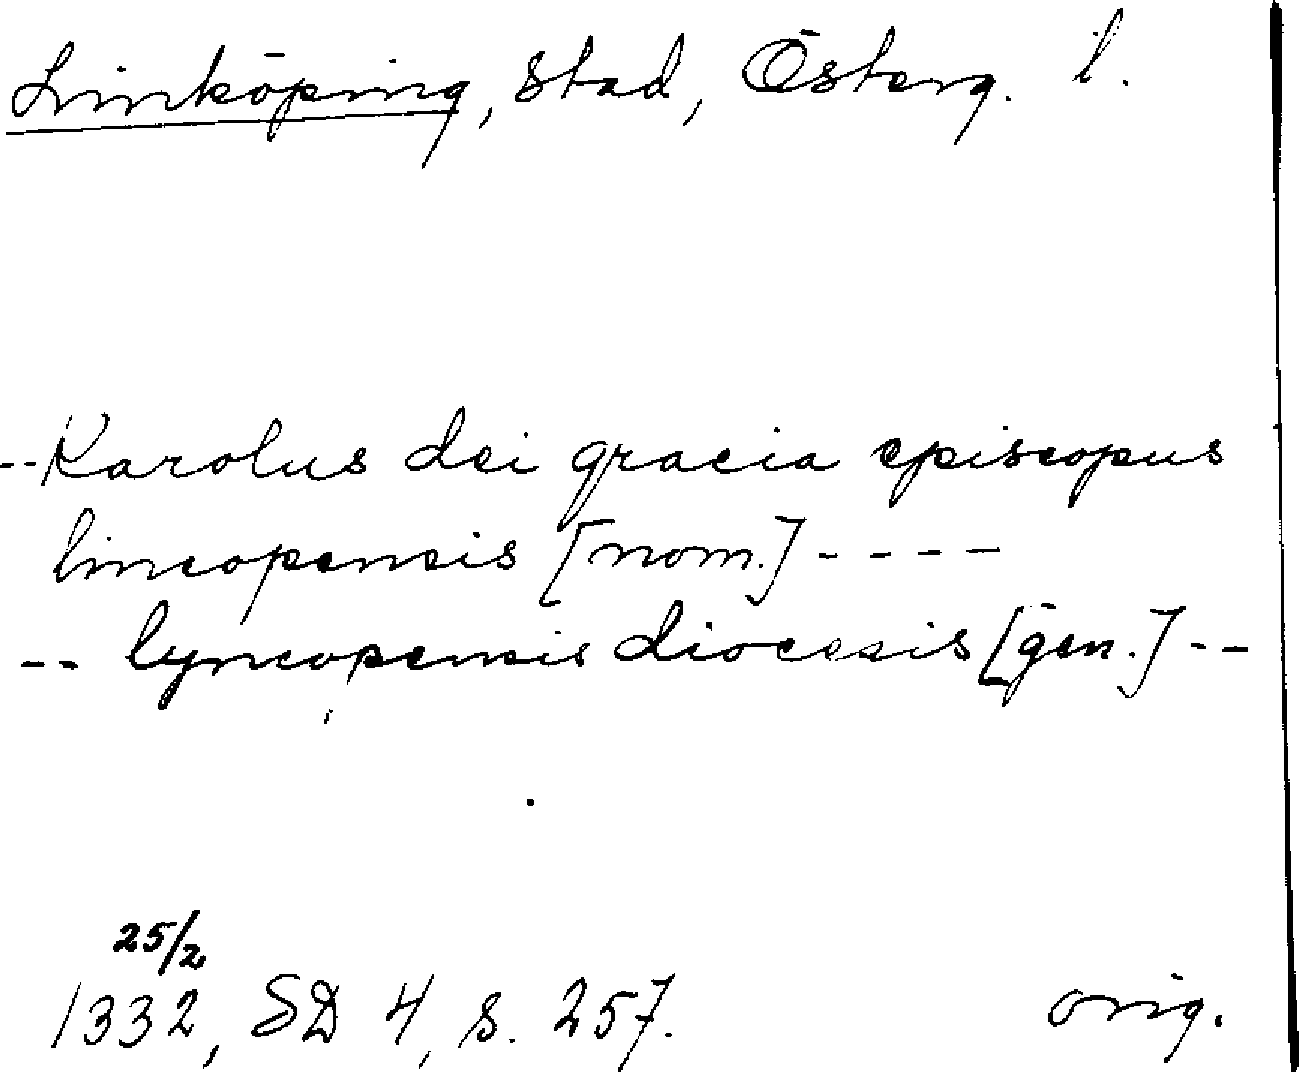 Linköping, stad, Österg. l.
--Karolus dei gracia episcopus
lincopensis [nom.] ----
-- lyncopensis diocesis [gen.] --
25/2
1332, SD 4, s. 257. orig.